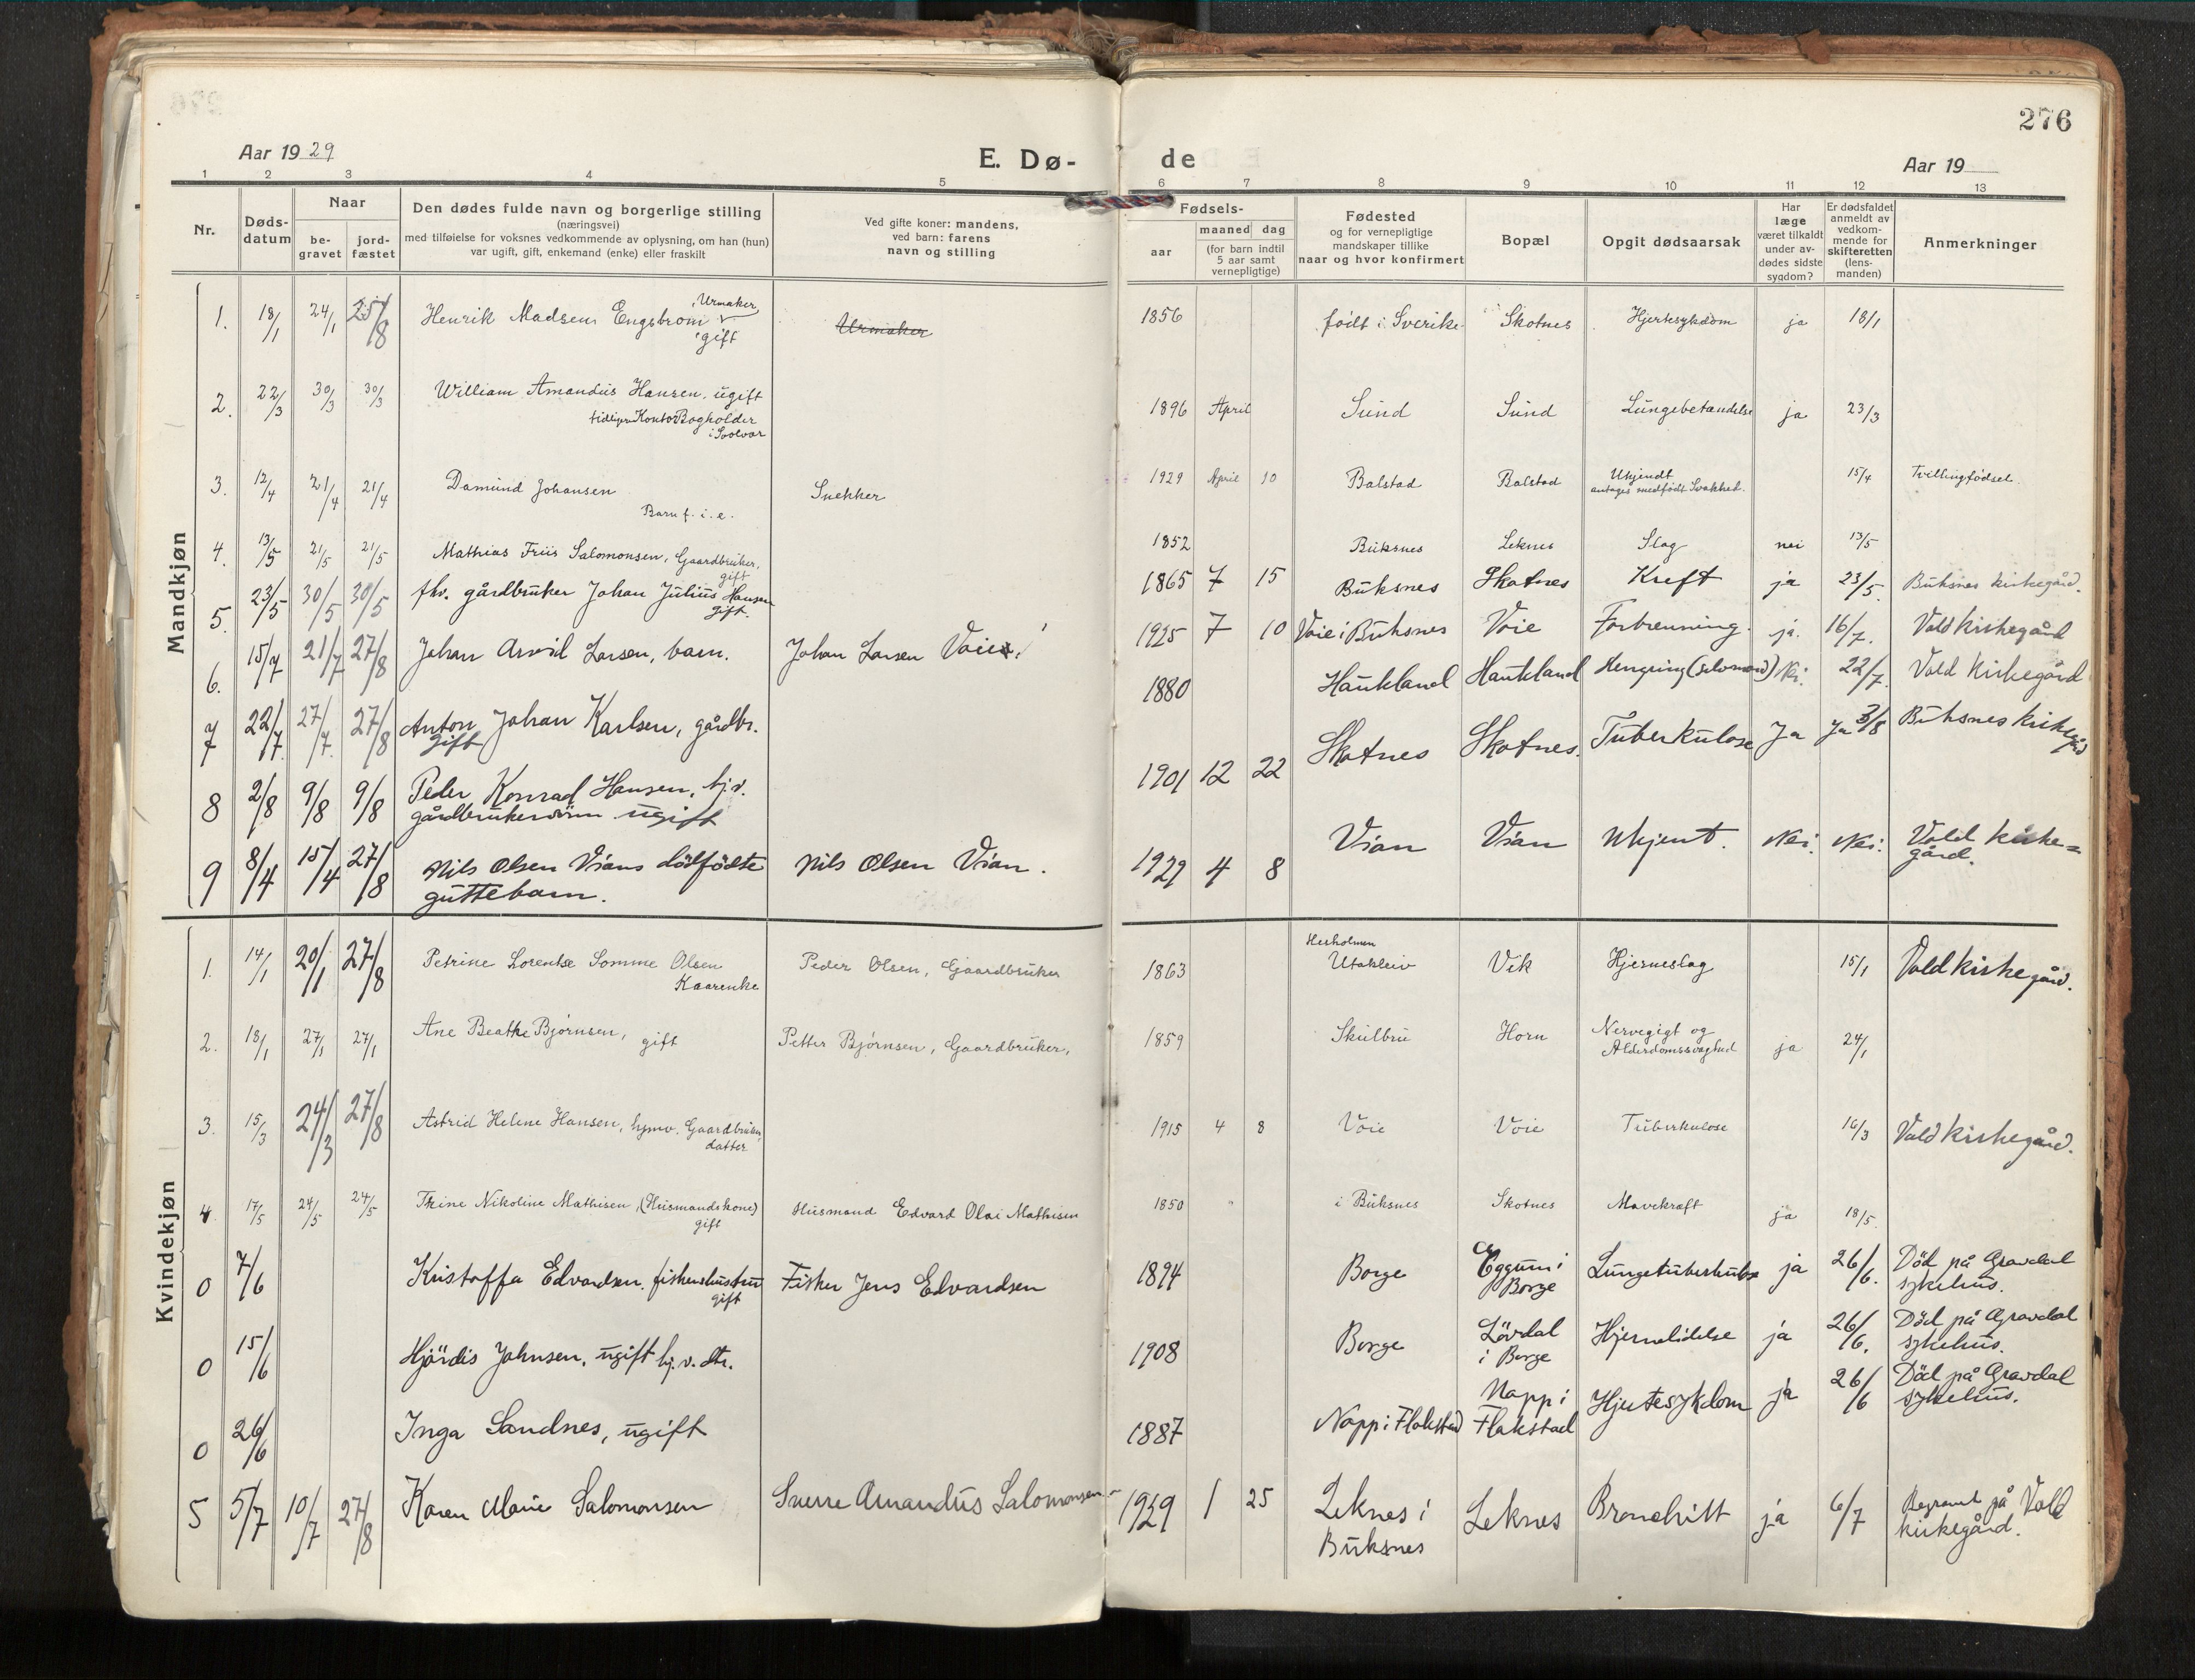 276
Aar 1929
E. Dø-
de
Aar 19
1 2 3 4 5 6 7 8 9 10 11 12 13
Nr.
Døds-
datum
Naar
be-
gravet
jord-
fæstet
Den dødes fulde navn og borgerlige stilling
(næringsvei)
med tilføielse for voksnes vedkommende av oplysning, om han (hun)
var ugift, gift, enkemand (enke) eller fraskilt
Ved gifte koner: mandens,
ved barn: farens
navn og stilling
Fødsels-
aar
maaned dag
(for barn indtil
5 aar samt
vernepligtige)
Fødested
og for vernepligtige
mandskaper tillike
naar og hvor konfirmert
Bopæl
Opgit dødsaarsak
Har
læge
været tilkaldt
under av-
dødes sidste
sygdom?
Er dødsfaldet
anmeldt av
vedkom-
mende for
skifteretten
(lens-
manden)
Anmerkninger
Mandkjøn
1. 18/1 24/1 25/8 Henrik Madsen Engstrøm, Urmaker
gift
Urmaker
1856 født i Sverike Skotnes Hjertesykdom ja 18/1
2. 22/3 30/3 30/3 William Amandus Hansen, ugift
Bogholder
i Svolvær
1896 April Sund Sund Lungebetændelse ja 23/3
3. 12/4 21/4 21/4 Damund Johansen
Barn f. i. e.
Snekker
1929 April 10 Balstad Balstad Ukjendt
antages medfødt Svakhet. 15/4 Tvillingfødsel.
4. 13/5 21/5 21/5 Mathias Friis Salomonsen, Gaardbruker,
gift
1852 Buksnes Leknes Slag nei 13/5
5. 23/5 30/5 30/5 fhv. gårdbruker Johan Julius Hansen
gift.
1865 7 15 Buksnes Skotnes Kreft ja 23/5. Buksnes kirkegård.
6. 15/7 21/7 27/8 Johan Arvid Larsen, barn. Johan Larsen Voie
1925 7 10 Voie i Buksnes Voie Forbrenning. ja. 16/7. Vold Kirkegård
7 22/7 27/7. 27/8 Anton Johan Karlsen, gårdbr.
gift
1880 Haukland Haukland Hengning (selvmord) Nei. 22/7. Vold Kirkegård
8 2/8 9/8 9/8 Peder Konrad Hansen, hj.v.
gårdbrukersønn ugift
1901 12 22 Skotnes Skotnes. Tuberkulose Ja Ja 3/8 Buksnes Kirkegård
9 8/4 15/4 27/8 Nils Olsen Vians dødfødte
guttebarn.
Nils Olsen Vian.
1929 4 8 Vian Vian Ukjent. Nei. Nei. Vold kirke=
gård.
Kvindekjøn
1. 14/1 20/1 27/8 Petrine Lorentse Somme Olsen
Kaarenke
Peder Olsen, Gaardbruker
1863
Utakleiv Vik Hjerneslag 15/1 Vold kirkegård.
2. 18/1 27/1 27/1 Ane Beathe Bjørnsen,
gift
Petter Bjørnsen, Gaardbruker,
1859 Skulbru Horn Nervegigt og
Alderdomssvaghed ja 24/1
3. 15/3 24/3 27/8 Astrid Helene Hansen, hjmv. Gaardbruker
datter
1915 4 8 Voie Voie Tuberkulose 16/3 Vold kirkegård.
4. 17/5 24/5 24/5 Trine Nikoline Mathisen, (Husmandskone)
gift
Husmand Edvard Olai Mathisen
1850 " i Buksnes Skotnes Mavekræft ja 18/5.
0 7/6 Kristoffa Edvardsen. fiskerhustru
gift
Fisker Jens Edvardsen
1894 Borge Eggum i
Borge
Lungetuberkulose ja 26/6. Död på Gravdal
sykehus.
0 15/6 Hjördis Johnsen, ugift hj. v. dtr.
1908 Borge Lövdal
i Borge
Hjernelidelse ja 26/6. Död på Gravdal
sykehus.
0 26/6 Inga Sandnes, ugift
1887 Napp i Flakstad Napp i
Flakstad
Hjertesykdom ja 26/6 Död på Gravdal
sykehus.
5 5/7 10/7 27/8 Karen Marie Salomonsen Sverre Amandus Salomonsen
1929 1 25 Leknes i
Buksnes
Leknes Bronchitt ja 6/7 Begravet på Vold
kirkegård.